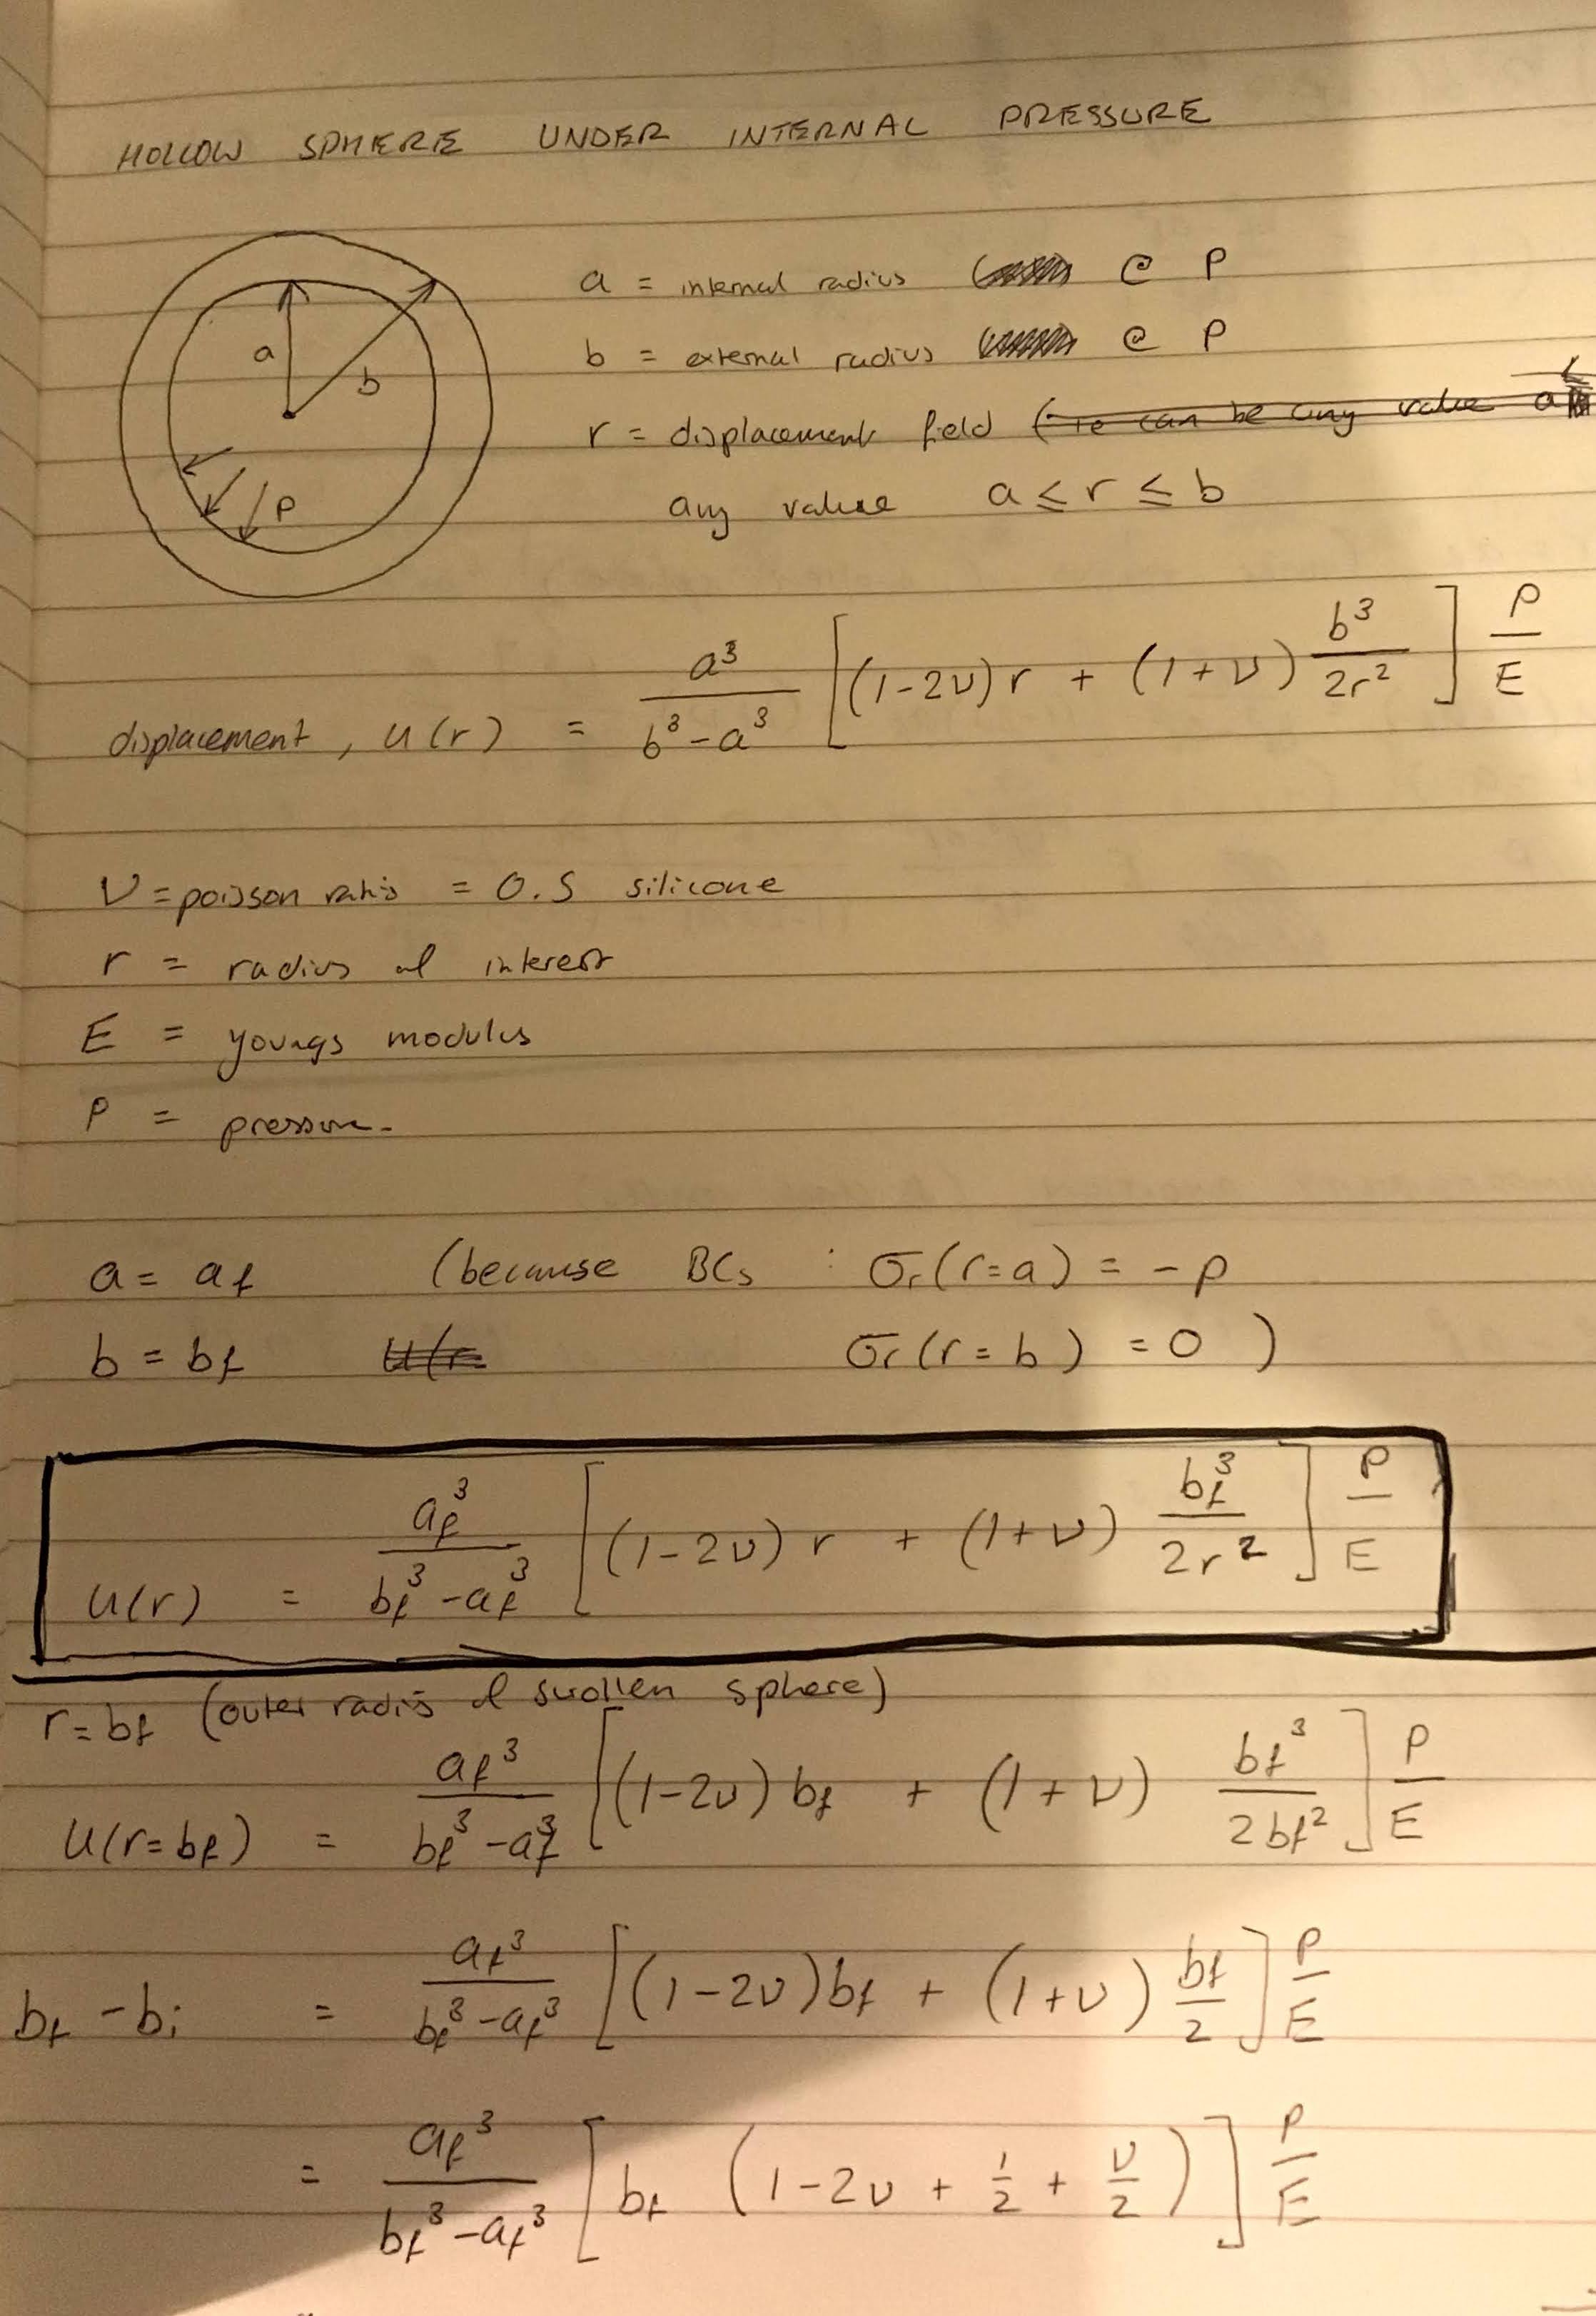 HOLLOW SPHERE UNDER INTERNAL PRESSURE
a = internal radius @ P
b = external radius @ P
r = displacement field (ie can be any value a ≤
any value a ≤ r ≤ b
a
b
P
displacement, u(r) = a³/(b³-a³) [(1-2ν)r + (1+ν) b³/2r²] P/E
ν = poisson ratio = 0.5 silicone
r = radius of interest
E = youngs modulus
P = pressure
a = af (because BCs : σr(r=a) = -p
b = bf u(r= σr(r=b) = 0 )
u(r) = af³/(bf³-af³) [(1-2ν) r + (1+ν) bf³/2r²] P/E
r = bf (outer radius of swollen sphere)
u(r=bf) = af³/(bf³-af³) [(1-2ν) bf + (1+ν) bf³/2bf²] P/E
bf - bi = af³/(bf³-af³) [(1-2ν)bf + (1+ν) bf/2] P/E
= af³/(bf³-af³) [bf (1-2ν + 1/2 + ν/2)] P/E